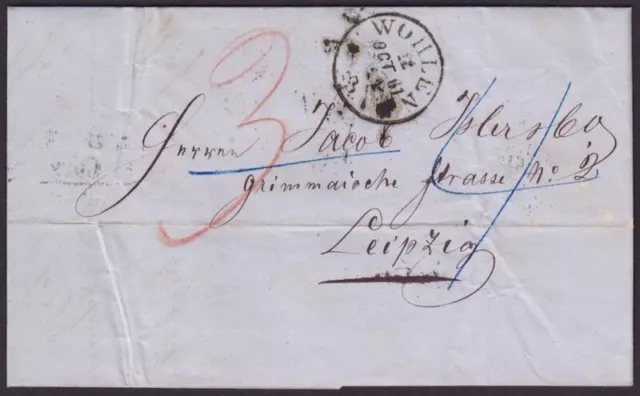 WOHLEN
12
OCT 61
3
Herren Jacob Isler & Co
Grimmaische Strasse No: 2
Leipzig